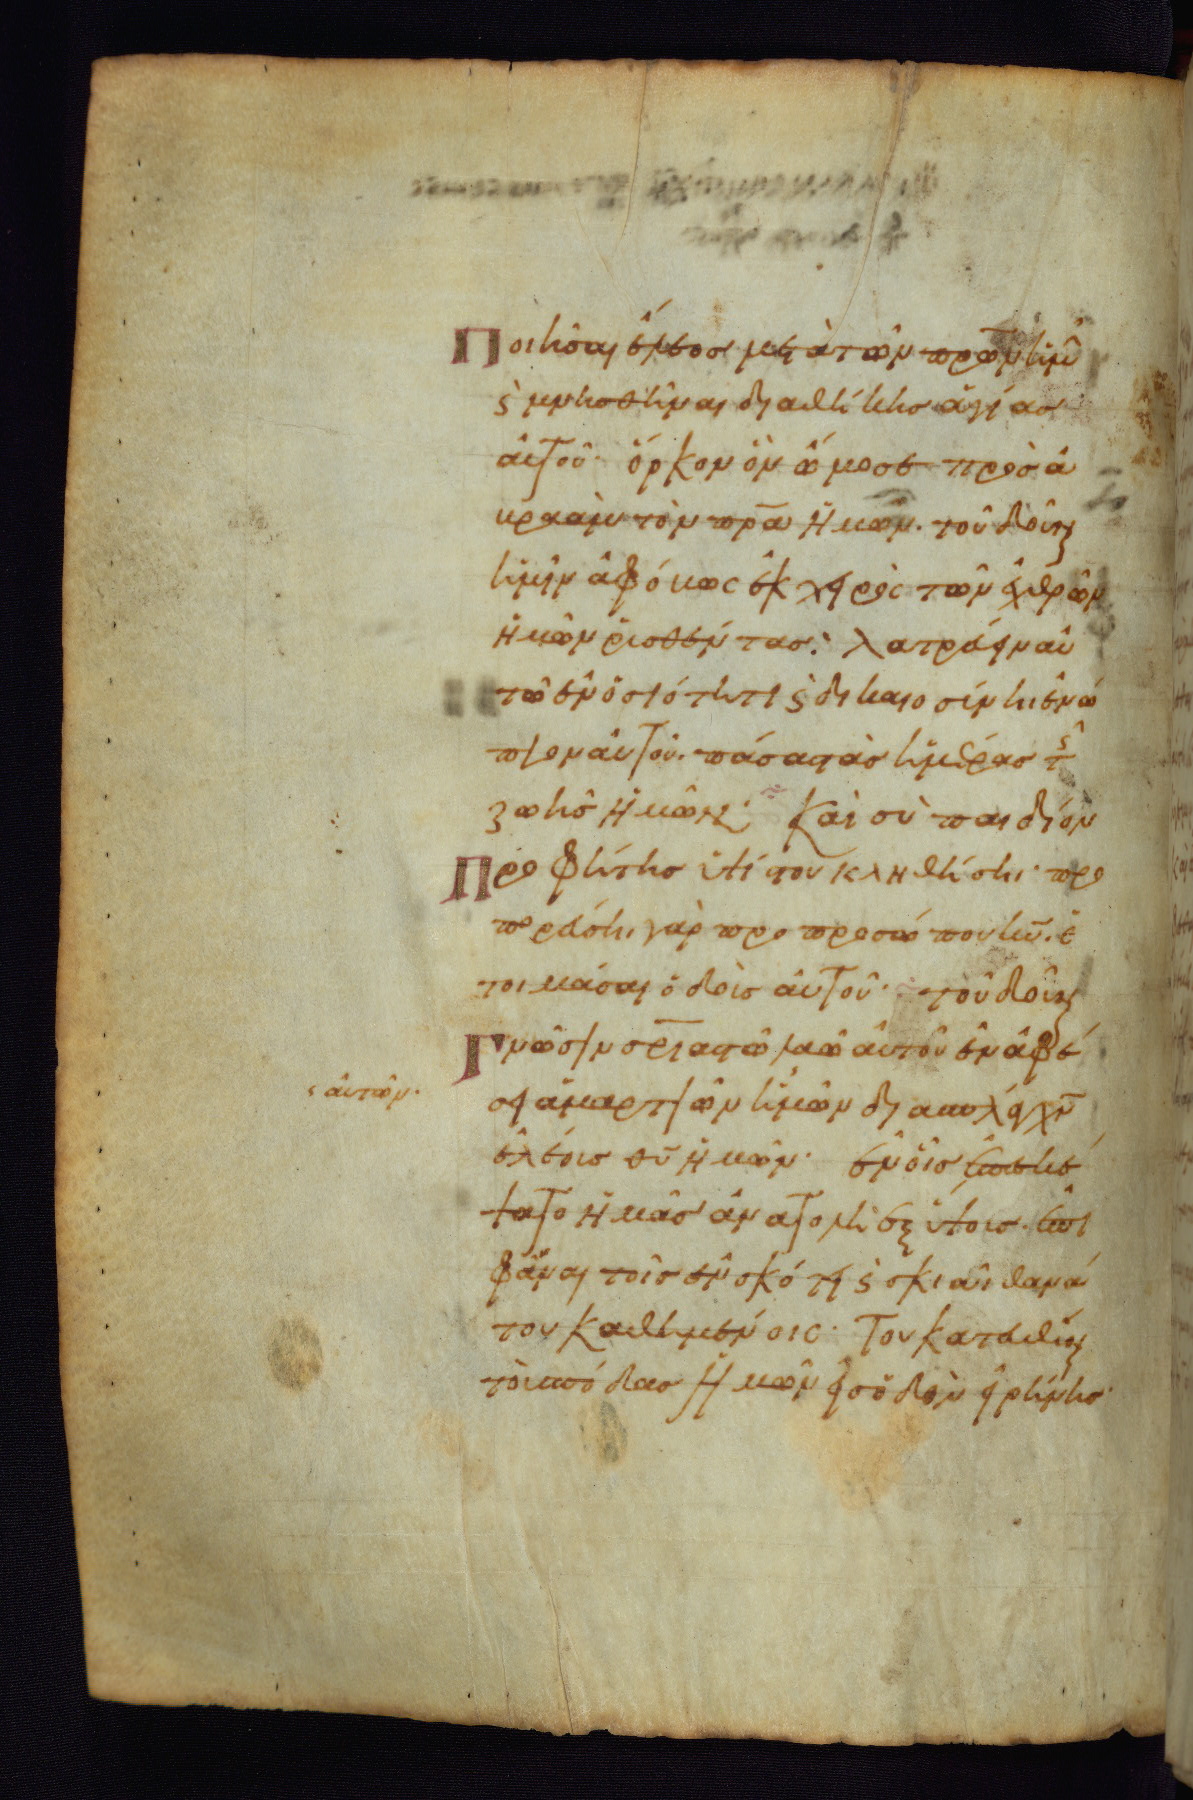 Ποιῆσαι ἔλεος μετὰ τῶν πρ̅ων ἡμῶ
ς̀ μνησθῆναι διαθήκης ἁγίας
αὐτοῦ· ὅρκον ὃν ὤμοσε πρὸς ἀ
βραὰμ τὸν πρ̅α ἡμῶν. τοῦ δοῦναι
ἡμῖν ἀφόβως ἐκ χειρὸς τῶν ἐχθρῶν
ἡμῶν ῥυσθέντας: λατρεύειν αὐ
τῶ ἐν ὁσιότητι ς̀ δικαιοσύνη ἐνώ
πιον αὐτοῦ. πάσας τὰς ἡμέρας τ̅ς
ζωῆς ἡμῶν: Καὶ σὺ παιδίον
Προφήτης ὑψίστου κληθήση· προ
πορεύση γὰρ προ προσώπου κ̅υ. ἑ
τοιμάσαι ὁδοὺς αὐτοῦ· τοῦ δοῦναι
Γνῶσιν σρ̅ιας τῶ λαῶ αὐτοῦ ἐν ἀφέ
ς αὐτῶν·
σει ἁμαρτιῶν ἡμῶν διὰ σπλάγχν̅
ἐλέους θ̅υ ἡμῶν· ἐν οἷς ἐπεσκέ
ψατο ἡμᾶς ἀνατολὴ ἐξ ὕψους. ἐπι
φᾶναι τοῖς ἐν σκότει ς̀ σκιᾶ θανά
του καθημένοις· Τοῦ κατευθῦναι
τοὺς πόδας ἡμῶν εἰς ὁδὸν εἰρήνης·